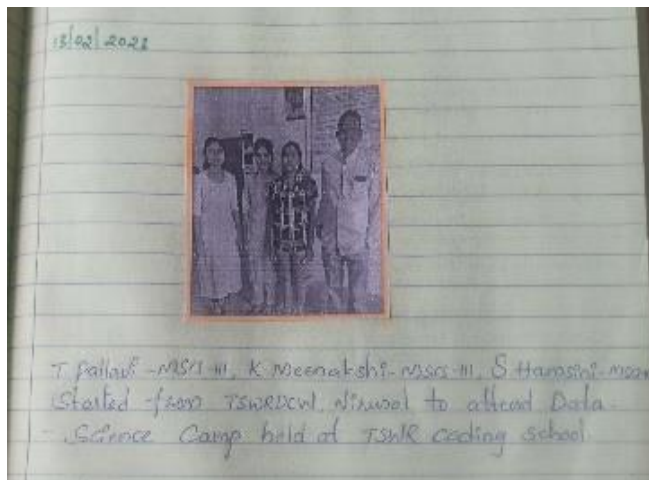 13/02/2023
T Pallavi - MSCS III, K Meenakshi - MSCS - III, S Harasini -
Started from TSWRDCW, Nirmal to attend Data
- Science Camp held at TSWR coding school